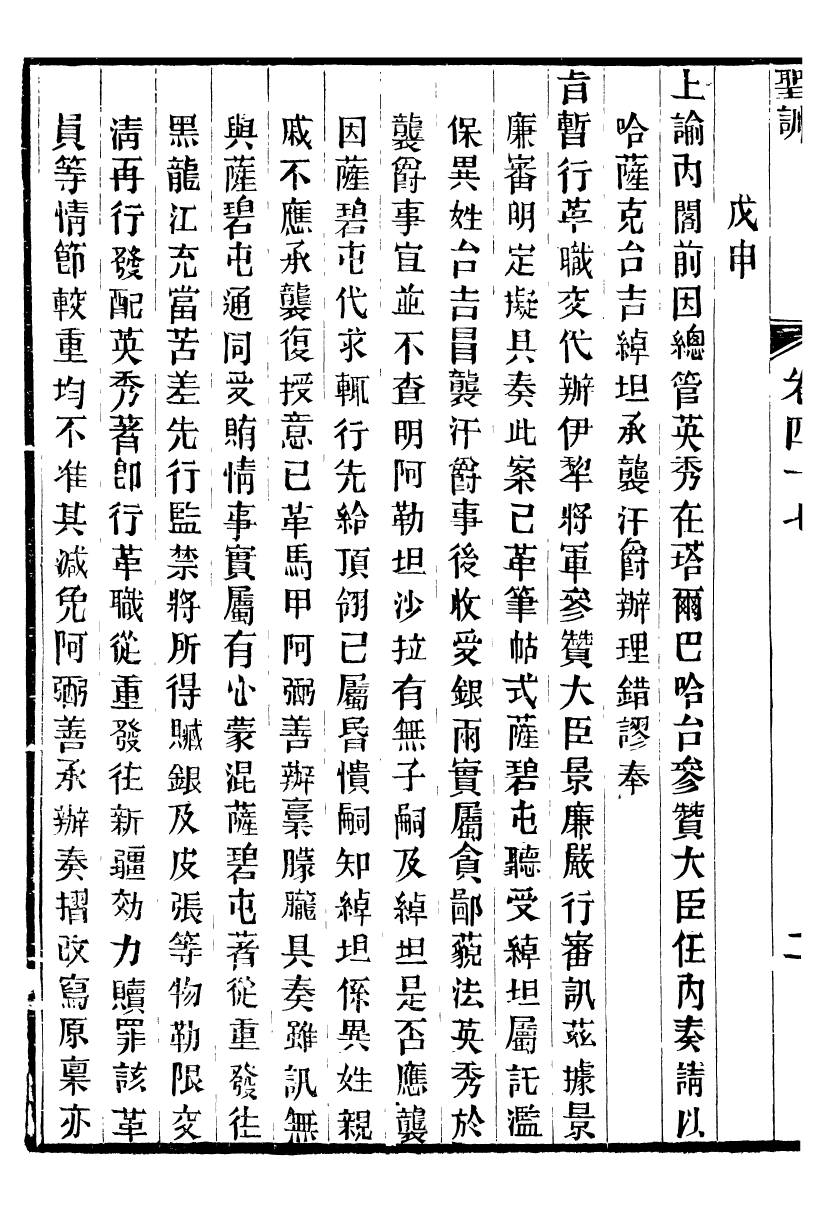 聖訓
卷四十七
二
戊申
上諭內閣前因總管英秀在塔爾巴哈台參贊大臣任內奏請以
哈薩克台吉綽坦承襲汗爵辦理錯謬奉
旨暫行革職交代辦伊犂將軍參贊大臣景廉嚴行審訊茲據景
廉審明定擬具奏此案已革筆帖式薩碧屯聽受綽坦屬託濫
保異姓台吉冒襲汗爵事後收受銀兩實屬貪鄙藐法英秀於
襲爵事宜並不查明阿勒坦沙拉有無子嗣及綽坦是否應襲
因薩碧屯代求輒行先給頂翎已屬昏憒嗣知綽坦係異姓親
戚不應承襲復授意已革馬甲阿彌善辦稾朦朧具奏雖訊無
與薩碧屯通同受賄情事實屬有心蒙混薩碧屯著從重發往
黑龍江充當苦差先行監禁將所得贓銀及皮張等物勒限交
清再行發配英秀著卽行革職從重發往新疆効力贖罪該革
員等情節較重均不准其減免阿彌善承辦奏摺改寫原稟亦